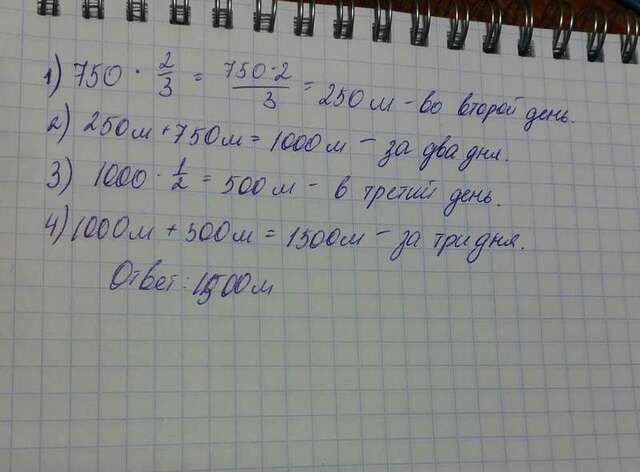 1) 750 · 2/3 = 750·2/3 = 250м – во второй день.
2) 250м + 750м = 1000м – за два дня.
3) 1000 · 1/2 = 500м – в третий день.
4) 1000м + 500м = 1500м – за три дня.
Ответ: 1500м